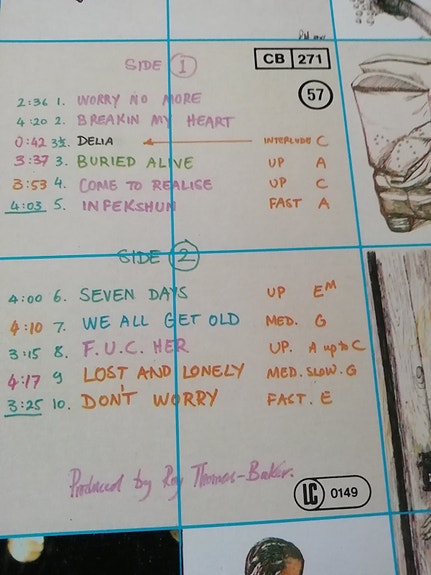 SIDE 1
CB 271
57
2:36 1. WORRY NO MORE
4:20 2. BREAKIN MY HEART
0:42 3½. DELIA INTERLUDE C
3:37 3. BURIED ALIVE UP A
3:53 4. COME TO REALISE UP C
4:03 5. INFEKSHUN FAST A
SIDE 2
4:00 6. SEVEN DAYS UP EM
4:10 7. WE ALL GET OLD MED. G
3:15 8. F.U.C. HER UP. A up to C
4:17 9 LOST AND LONELY MED. SLOW. G
3:25 10. DON'T WORRY FAST. E
Produced by Roy Thomas-Baker.
LC 0149